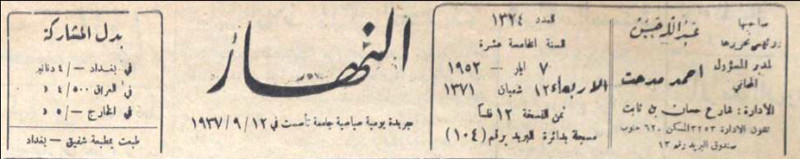 صاحبها
ورئيس تحريرها
عبدالله حسن
المدير المسؤول
المحامي
احمد مدحت
الادارة : شارع حسان بن ثابت
تلفون الادارة ٣٢٥٣ المسكن ٦٢٠ جنوب
صندوق البريد رقم ١٣
العدد ١٣٢٤
السنة الخامسة عشرة
٧ ايار — ١٩٥٢
الاربعاء ١٢ شعبان ١٣٧١
ثمن النسخة ١٢ فلسا
مسجلة بدائرة البريد برقم (١٠٤)
النهار
جريدة يومية سياسية جامعة تأسست في ١٢/٩/١٩٣٧
بدل المشاركة
في بغداد — /٤ دنانير
في العراق ٥٠٠/٤ د
في الخارج — /٥ د
طبعت بمطبعة شفيق — بغداد